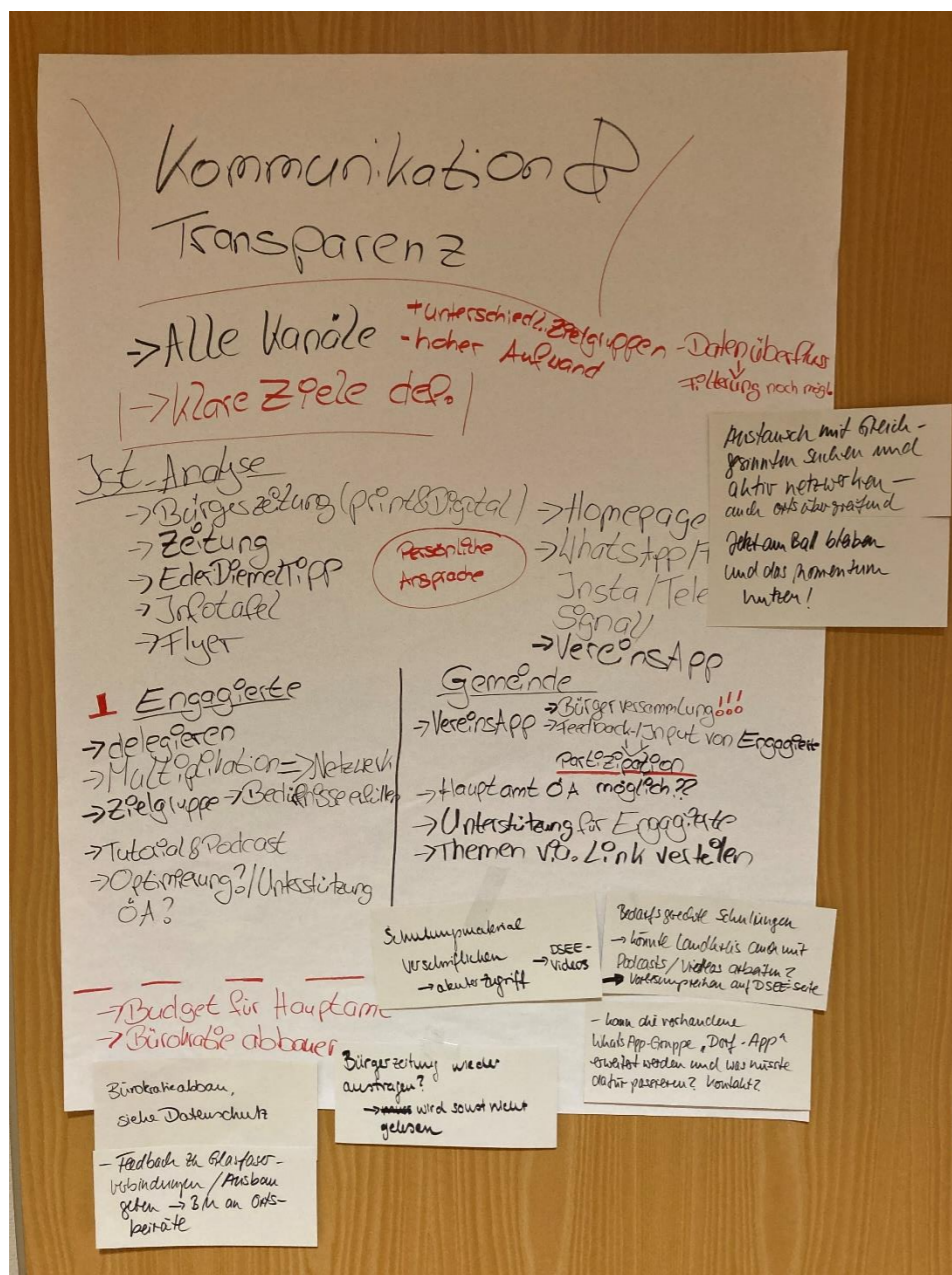 Kommunikation &
Transparenz
-> Alle Kanäle
+ unterschiedl. Zielgruppen
- hoher Aufwand
- Datenüberfluss
Filterung noch mögl.
-> klare Ziele def.
Ist-Analyse
-> Bürgerzeitung (print & Digital)
-> Zeitung
-> EderDiemelTipp
-> Infotafel
-> Flyer
Persönliche
Ansprache
-> Homepage
-> WhatsApp/
Insta/Tele
Signal/
-> VereinsApp
Austausch mit Gleich-
gesinnten suchen und
aktiv netzwerken –
auch ortsübergreifend
Jetzt am Ball bleiben
und das Momentum
nutzen!
Engagierte
-> delegieren
-> Multiplikation => Netzwerk
-> Zielgruppe -> Bedürfnisse erfüllen
-> Tutorial & Podcast
-> Optimierung?/Unterstützung
ÖA?
Gemeinde
-> Bürgerversammlung!!!
-> VereinsApp -> Feedback-/Input von Engagierte
Partizipation
-> Hauptamt ÖA möglich??
-> Unterstützung für Engagierte
-> Themen via. Link verteilen
-> Budget für Hauptamt
-> Bürokratie abbauen
Schulungsmaterial
verschriftlichen -> DSEE-
Videos
-> akuter Zugriff
Bedarfsgerechte Schulungen
-> könnte Landkreis auch mit
Podcasts/Videos arbeiten?
-> Vorlesungsreihen auf DSEE-Seite
- kann die vorhandene
WhatsApp-Gruppe „Dorf-App“
erweitert werden und was müsste
dafür passieren? Kontakt?
Bürgerzeitung wieder
austragen?
-> wird sonst nicht
gelesen
Bürokratieabbau,
siehe Datenschutz
- Feedback zu Glasfaser-
verbindungen / Ausbau
geben -> BM an Orts-
beiräte